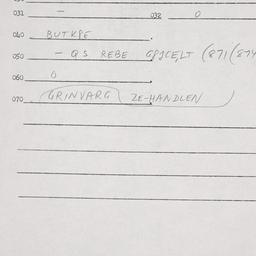 031 — 032 0
040 BUTKPE
050 – QS REBE (871(874
060 0
070 GRINVARG ZE-HANDLEN